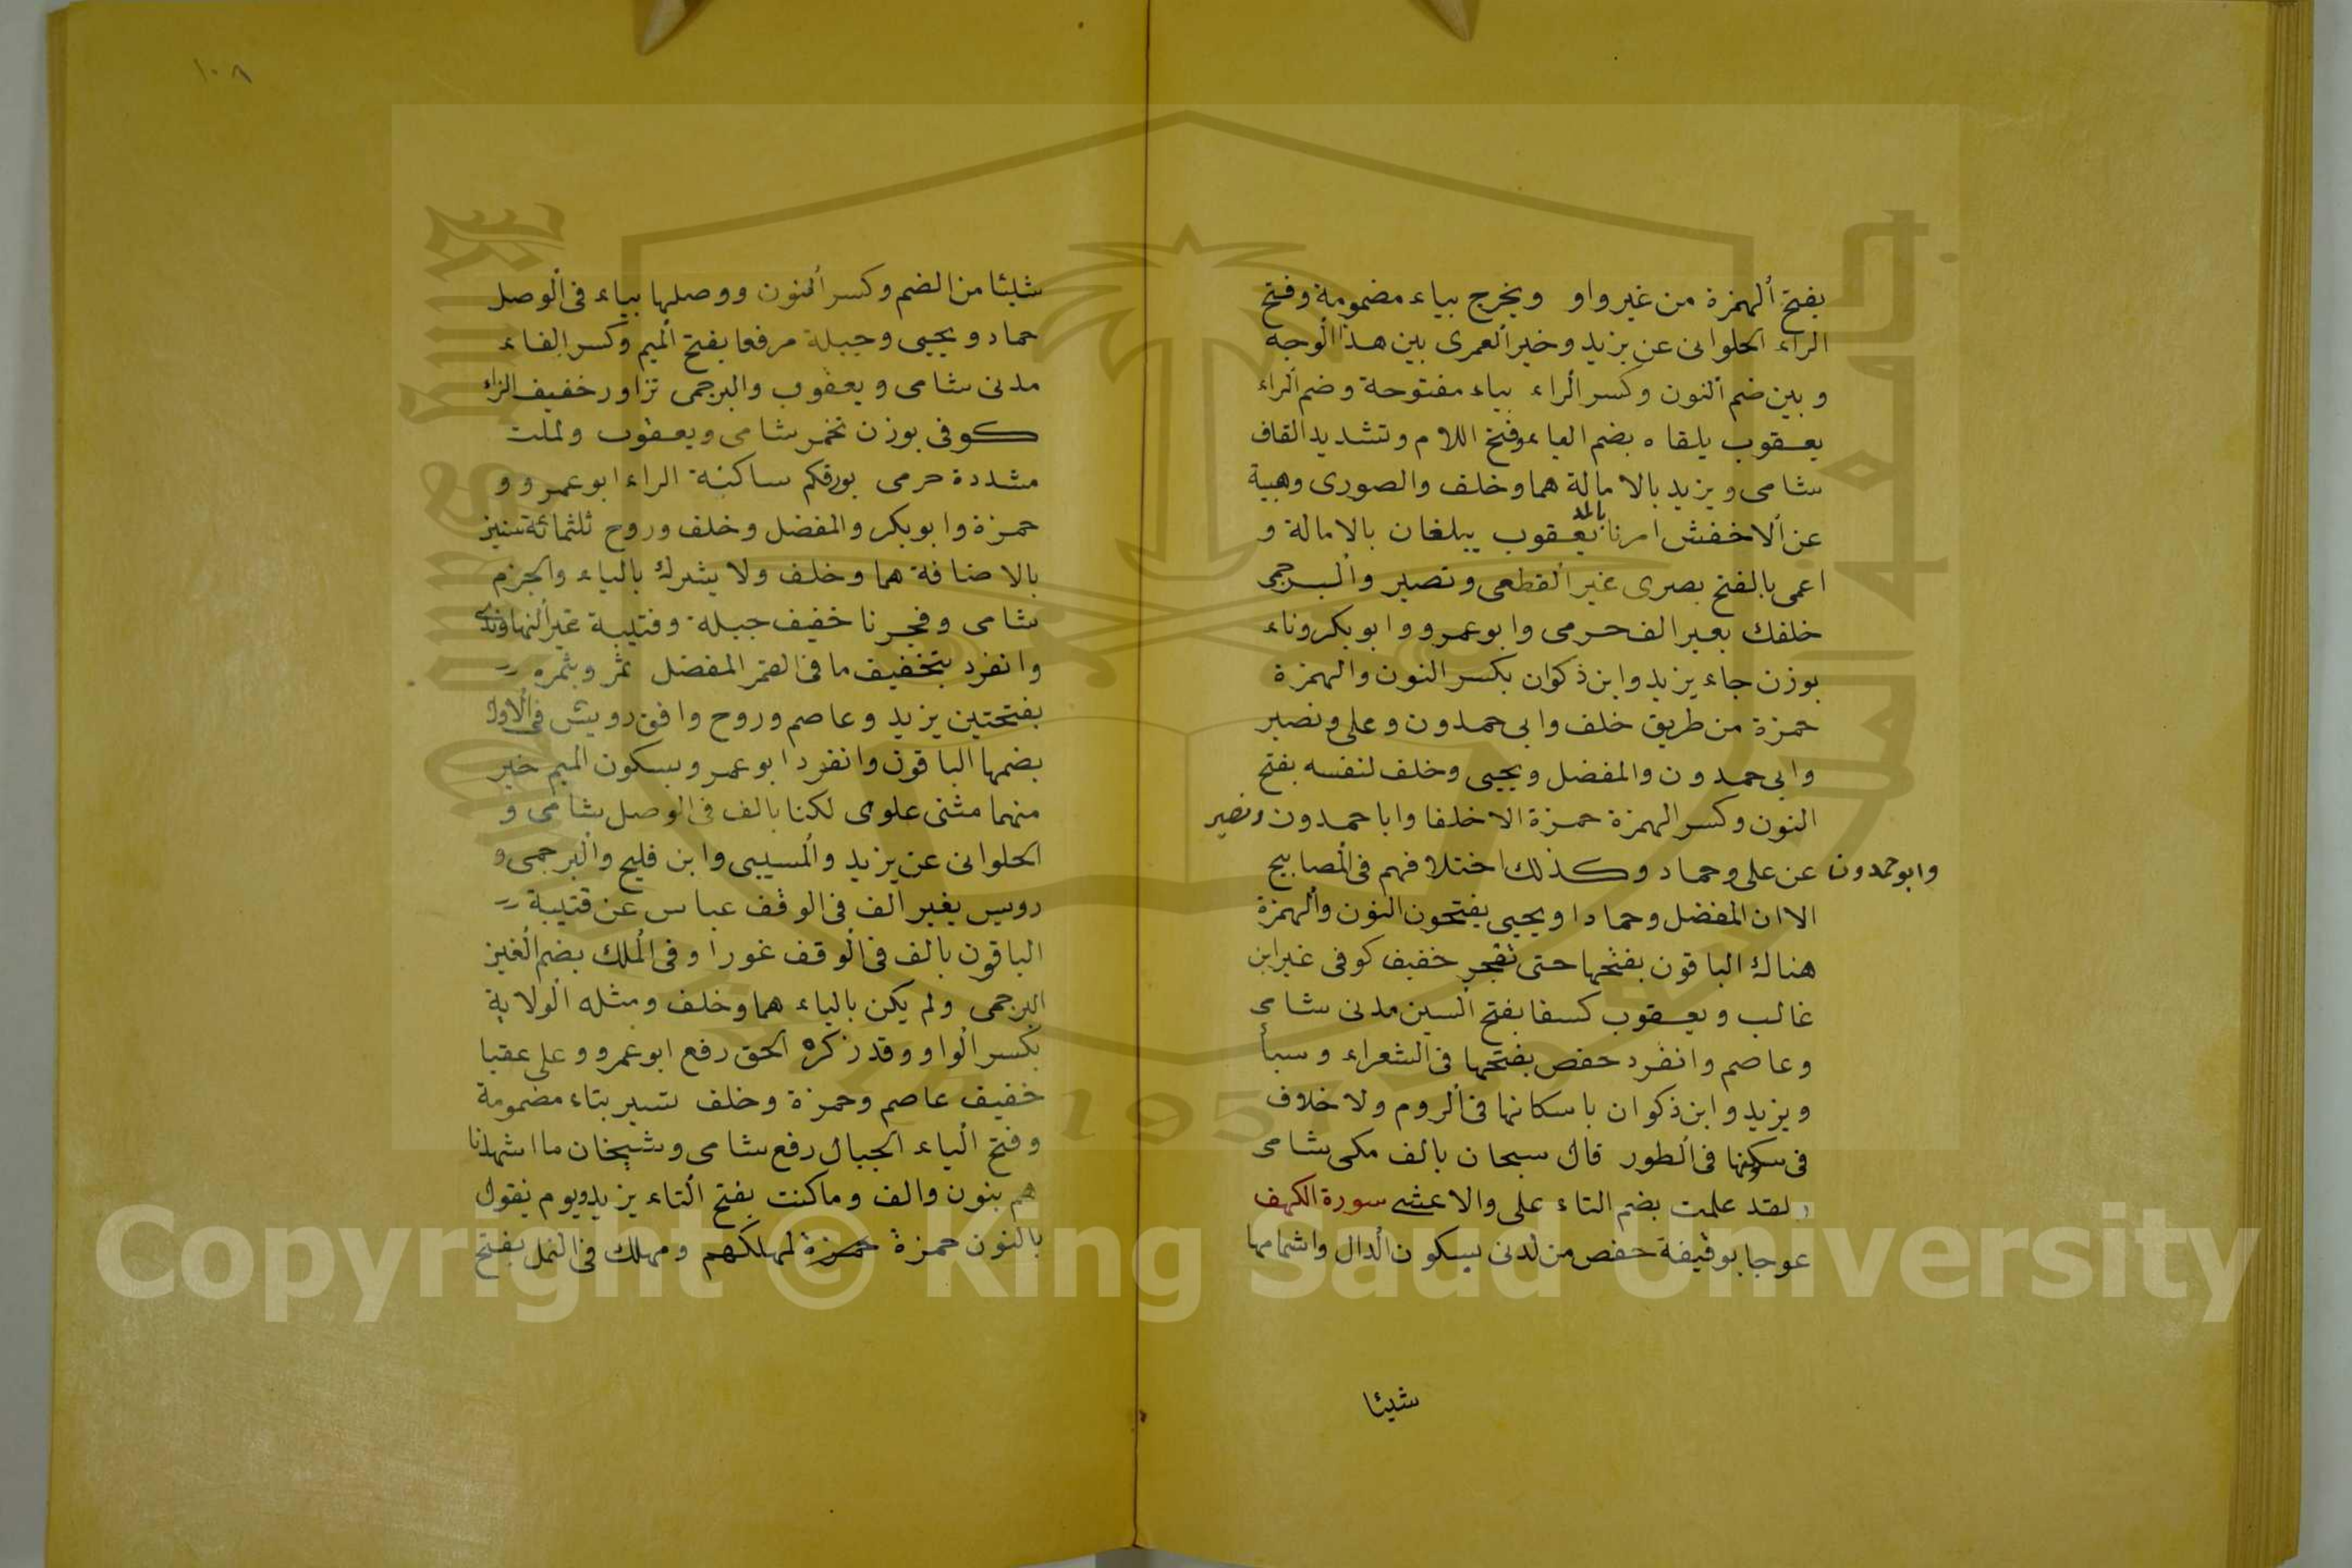 بفتح الهمزة من غير واو ويخرج بياء مضمومة وفتح
الراء الحلوانى عن يزيد وخير العمرى بين هذا الوجه
و بين ضم النون وكسر الراء بياء مفتوحة وضم الراء
يعقوب يلقاه بضم الياء وفتح اللام وتشديد القاف
شامى ويزيد بالامالة هما وخلف والصورى وهبة
عن الاخفش امرنا بالمد يعقوب يبلغان بالامالة و
اعمى بالفتح بصرى غير القطعى ونصير والبرجمى
خلفك بغير الف حرمى وابو عمرو وابو بكر وناء
بوزن جاء يزيد وابن ذكوان بكسر النون والهمزة
حمزة من طريق خلف وابى حمدون وعلى ونصير
وابى حمدون والمفضل ويحيى وخلف لنفسه بفتح
النون وكسر الهمزة حمزة الا خلفا وابا حمدون ونصير
وابو حمدون عن على وحماد وكذلك اختلافهم فى المصابيح
الا ان المفضل وحمادا ويحيى يفتحون النون والهمزة
هناك الباقون بفتحها حتى تفجر خفيف كوفى غير ابن
غالب ويعقوب كسفا بفتح السين مدنى شامى
وعاصم وانفرد حفص بفتحها فى الشعراء وسبأ
ويزيد وابن ذكوان باسكانها فى الروم ولا خلاف
فى سكونها فى الطور قال سبحان بالف مكى شامى
لقد علمت بضم التاء على والاعشى سورة الكهف
عوجا بوقيفة حفص من لدنى بسكون الدال واشمامها
شيئا
١٠٨
شيئا من الضم وكسر النون ووصلها بياء فى الوصل
حماد ويحيى وجبلة مرفعا بفتح الميم وكسر الفاء
مدنى شامى ويعقوب والبرجمى تزاور خفيف الزاء
كوفى بوزن تحمر شامى ويعقوب ولملت
مشددة حرمى بورقكم ساكنة الراء ابو عمرو و
حمزة وابو بكر والمفضل وخلف وروح ثلثمائة سنين
بالاضافة هما وخلف ولا يشرك بالياء والجزم
شامى وفجرنا خفيف جبلة وقتيبة غير النهاوندى
وانفرد بتخفيف ما فى القمر المفضل ثمر وبثمره
بفتحتين يزيد وعاصم وروح وافق رويس فى الاول
بضمها الباقون وانفرد ابو عمرو بسكون الميم خير
منهما مثنى علوى لكنا بالف فى الوصل شامى و
الحلوانى عن يزيد والمسيبى وابن فليح والبرجمى و
رويس بغير الف فى الوقف عباس عن قتيبة
الباقون بالف فى الوقف غورا وفى الملك بضم الغين
البرجمى ولم يكن بالياء هما وخلف ومثله الولاية
بكسر الواو وقد ذكره الحق رفع ابو عمرو وعلى عقبا
خفيف عاصم وحمزة وخلف تسير بتاء مضمومة
وفتح الياء الجبال رفع شامى وشيخان ما اشهدنا
هم بنون والف وما كنت بفتح التاء يزيد ويوم نقول
بالنون حمزة حمزة لمهلكهم ومهلك فى النمل بفتح
Copyright © King Saud University
1957